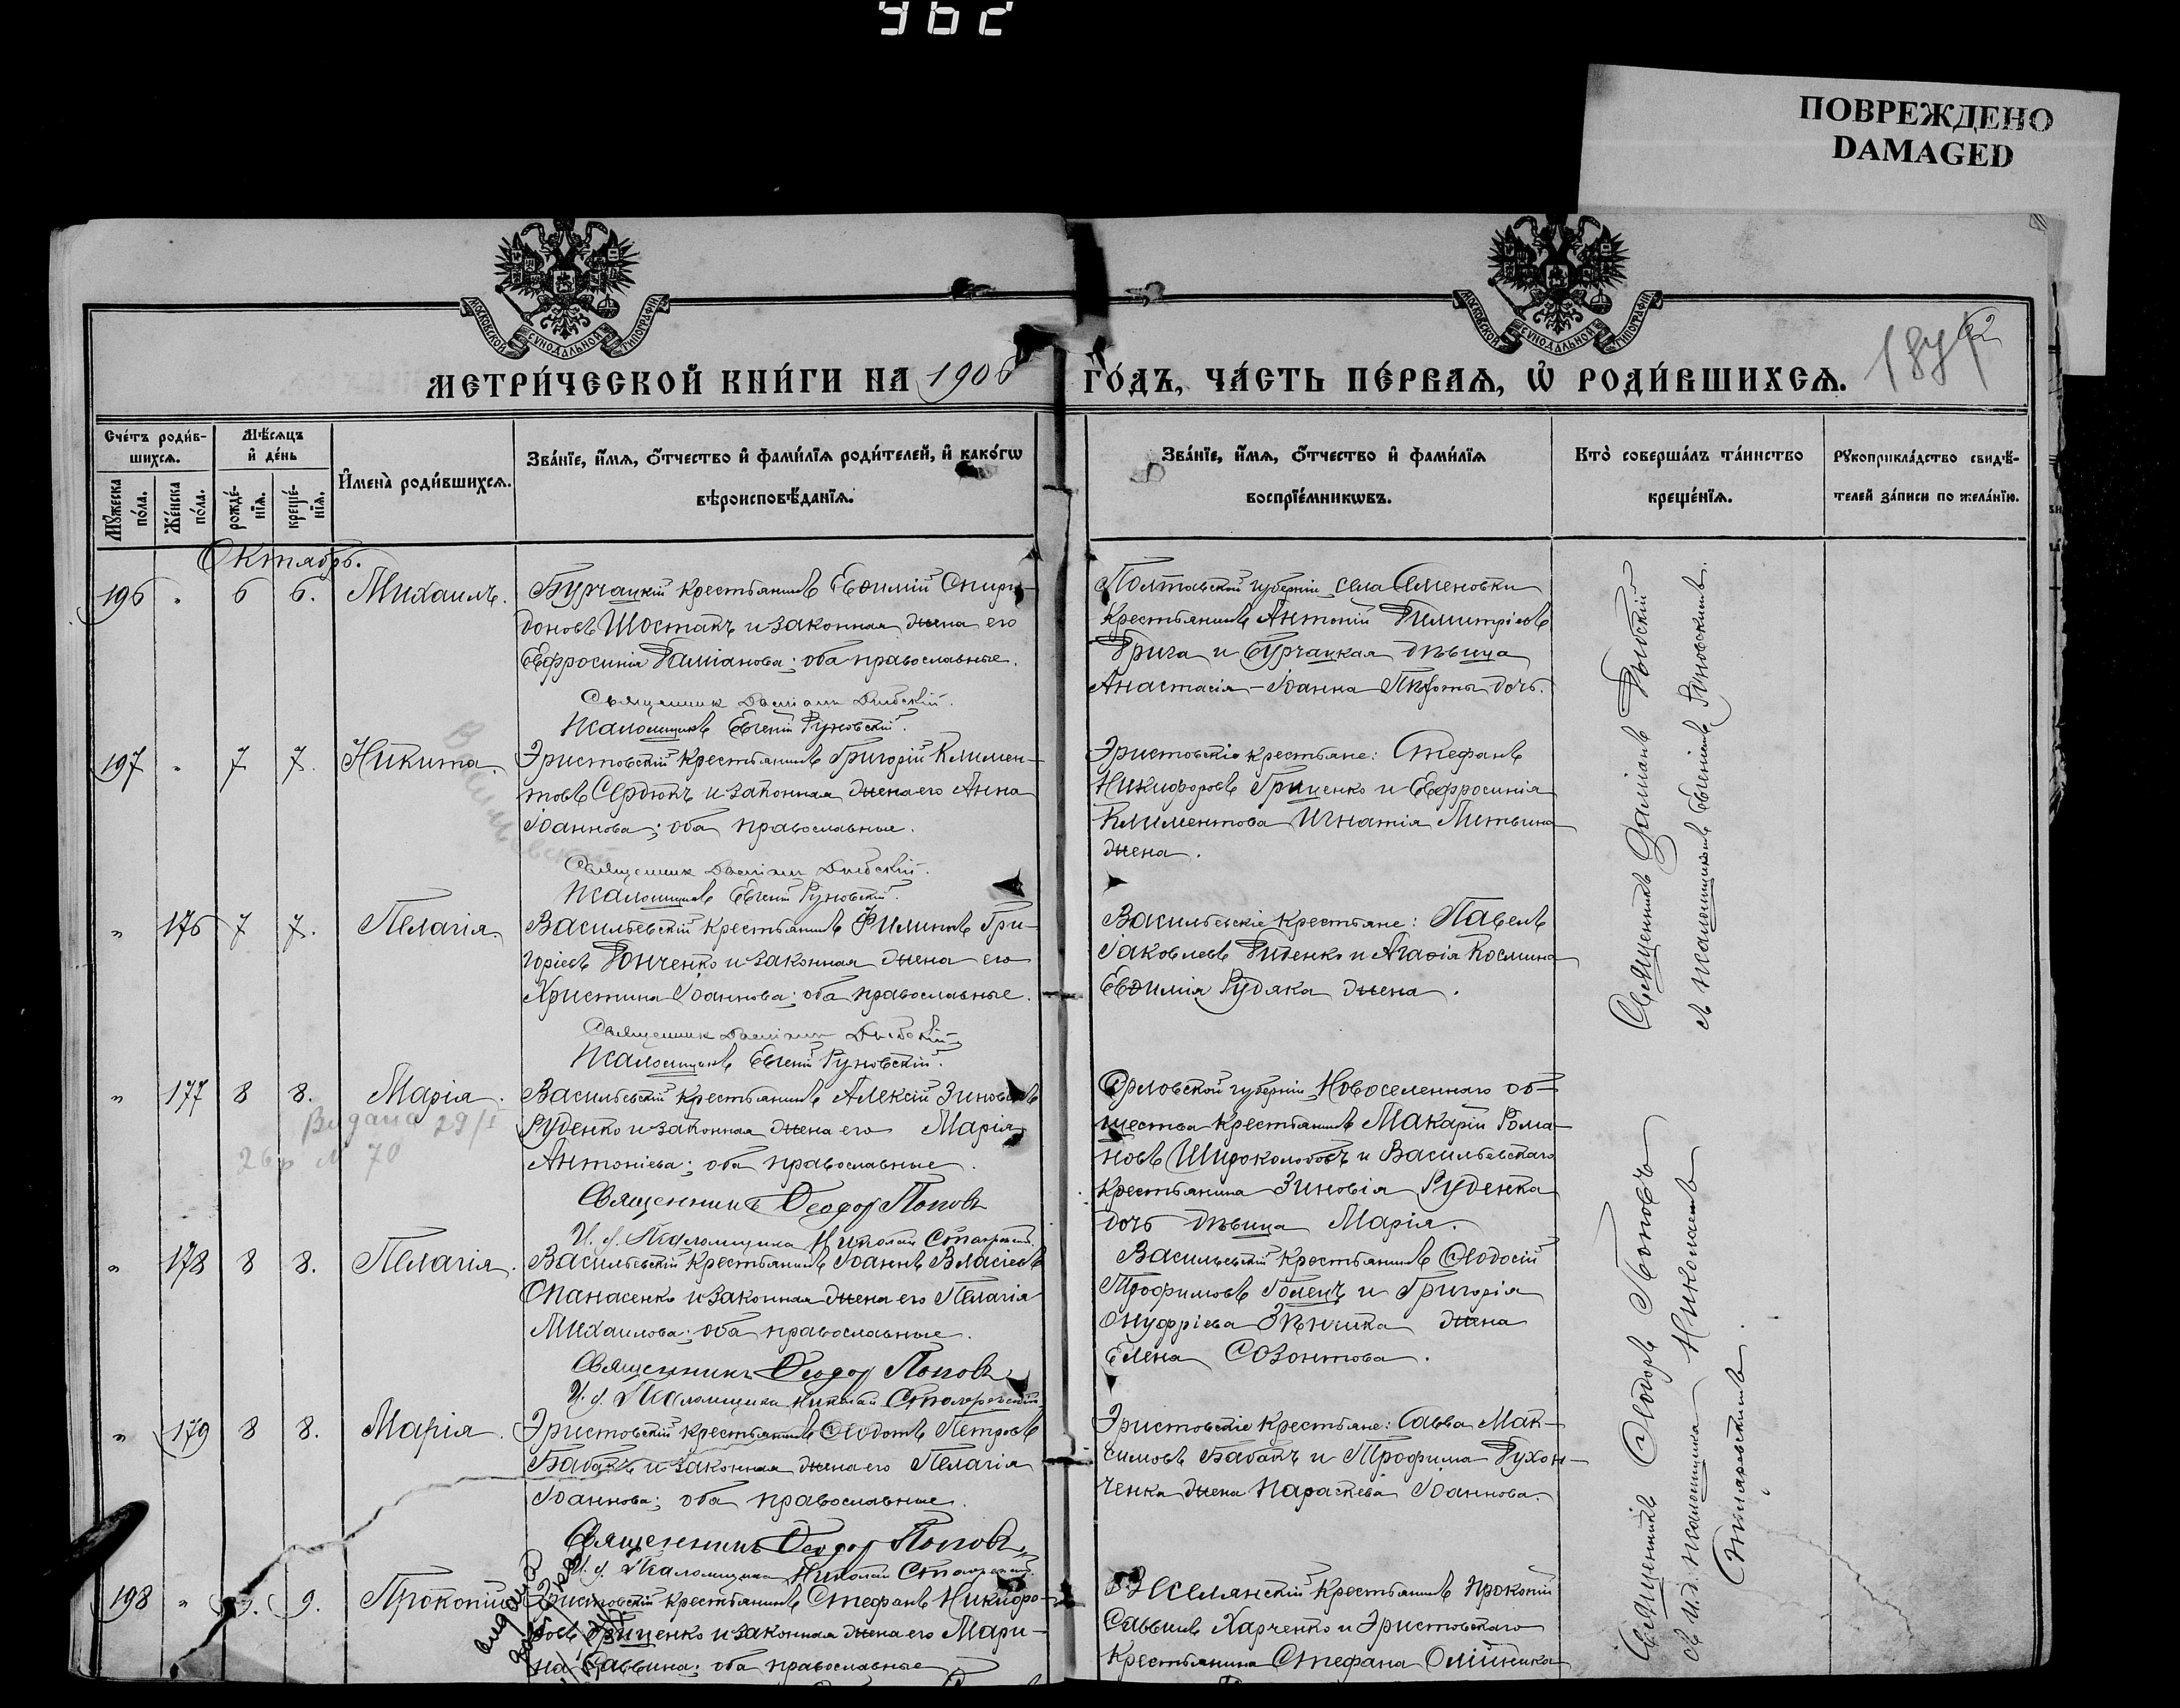 962
ПОВРЕЖДЕНО
DAMAGED
МОСКОВСКОЙ СѴНОДАЛЬНОЙ ТИПОГРАФІИ
МОСКОВСКОЙ СѴНОДАЛЬНОЙ ТИПОГРАФІИ
МЕТРИ́ЧЕСКОЙ КНИ́ГИ НА 1906 ГО́ДЪ, ЧА́СТЬ ПЕ́РВАѦ, Ѡ҆ РОДИ́ВШИХСѦ.
Сче́тъ роди́в-
шихсѧ.
Мѣ́сѧцъ
и҆ де́нь
Мꙋ́жеска
по́ла.
Же́нска
по́ла.
рожде́-
нїѧ.
креще́-
нїѧ.
И҆мена̀ роди́вшихсѧ.
Зва́нїе, и҆́мѧ, ѻ҆́тчество и҆ фами́лїѧ роди́телей, и҆ како́гѡ
вѣроисповѣ́данїѧ.
Зва́нїе, и҆́мѧ, ѻ҆́тчество и҆ фами́лїѧ
воспрїе́мникѡвъ.
Кто̀ соверша́лъ та́инство
креще́нїѧ.
Рꙋкоприкла́дство свидѣ́-
телей за́писи по жела́нїю.
Октябрь.
196 " 6 6. Михаилъ.
Бурчацкій крестьянинъ Евѳимій Спири-
доновъ Шостакъ и законная жена его
Евфросинія Даміанова; оба православные.
Священник Даміанъ Дыбскій.
Псаломщикъ Евгеній Руновскій.
Полтавской губерніи, села Семеновки
крестьянинъ Антоній Димитріевъ
Дрига и Бурчацкая дѣвица
Анастасія – Іоанна дочь.
197 " 7 7. Никита.
Эристовскій крестьянинъ Григорій Климен-
товъ Сердюкъ и законная жена его Анна
Іоаннова; оба православные.
Священник Даміанъ Дыбскій.
Псаломщикъ Евгеній Руновскій.
Эристовскіе крестьяне: Стефанъ
Никифоровъ Гриценко и Евфросинія
Климентова Игнатія Литвина
жена.
" 176 7 7. Пелагія.
Васильевскій крестьянинъ Филиппъ Гри-
горіевъ Донченко и законная жена его
Христина Іоаннова; оба православные.
Священник Даміанъ Дыбскій
Псаломщикъ Евгеній Руновскій.
Васильевскіе крестьяне: Павелъ
Іаковлевъ Диденко и Агаѳія Космина
Евѳимія Рудяка жена.
" 177 8 8. Марія.
Видана 29/I
26 р № 70
Васильевскій крестьянинъ Алексій Зиновіевъ
Руденко и законная жена его Марія
Антоніева; оба православные.
Священникъ Ѳеодоръ Поповъ
И. д. Псаломщика Николай
Орловской губерніи, Новоселеннаго об-
щества крестьянинъ Макарій Рома-
новъ Широколобовъ и Васильевскаго
крестьянина Зиновія Руденка
дочь дѣвица Марія.
" 178 8 8. Пелагія.
Васильевскій крестьянинъ Іоаннъ Власіевъ
Опанасенко и законная жена его Пелагія
Михаилова; оба православные.
Священникъ Ѳеодоръ Поповъ
И. д. Псаломщика Николай
Васильевскій крестьянинъ Ѳеодосій
Трофимовъ Голецъ и Григорія
Онуфріева жена
Елена Созонтова.
" 179 8 8. Марія.
Эристовскій крестьянинъ Ѳеодотъ Петровъ
Бабакъ и законная жена его Пелагія
Іоаннова; оба православные.
Священникъ Ѳеодоръ Поповъ
И. д. Псаломщика Николай
Эристовскіе крестьяне: Савва Мак-
симовъ Бабакъ и Трофима Духон-
ченка жена Параскева Іоаннова.
198 " 9. 9. Прокопій
Эристовскій крестьянинъ Стефанъ Никифо-
ровъ Гриценко и законная жена его Мари-
на Саввина; оба православные
крестьянинъ Прокопій
Саввинъ Харченко и Эристовскаго
крестьянина Стефана Олійника
Священникъ Даміанъ Дыбскій
съ псаломщикомъ Евгеніемъ Руновскимъ.
Священникъ Ѳеодоръ Поповъ
съ и. д. псаломщика Николаемъ